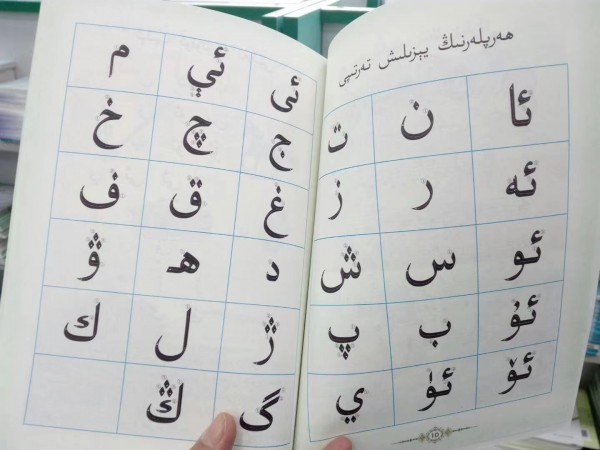 ھەرپلەرنىڭ يېزىلىش تەرتىپى
ئا ن ت
ئە ر ز
ئو س ش
ئۇ ب پ
ئۆ ئۈ ي
10
ئى ئې م
ج چ خ
غ ق ف
د ھ ۋ
ژ ل ك
گ ڭ